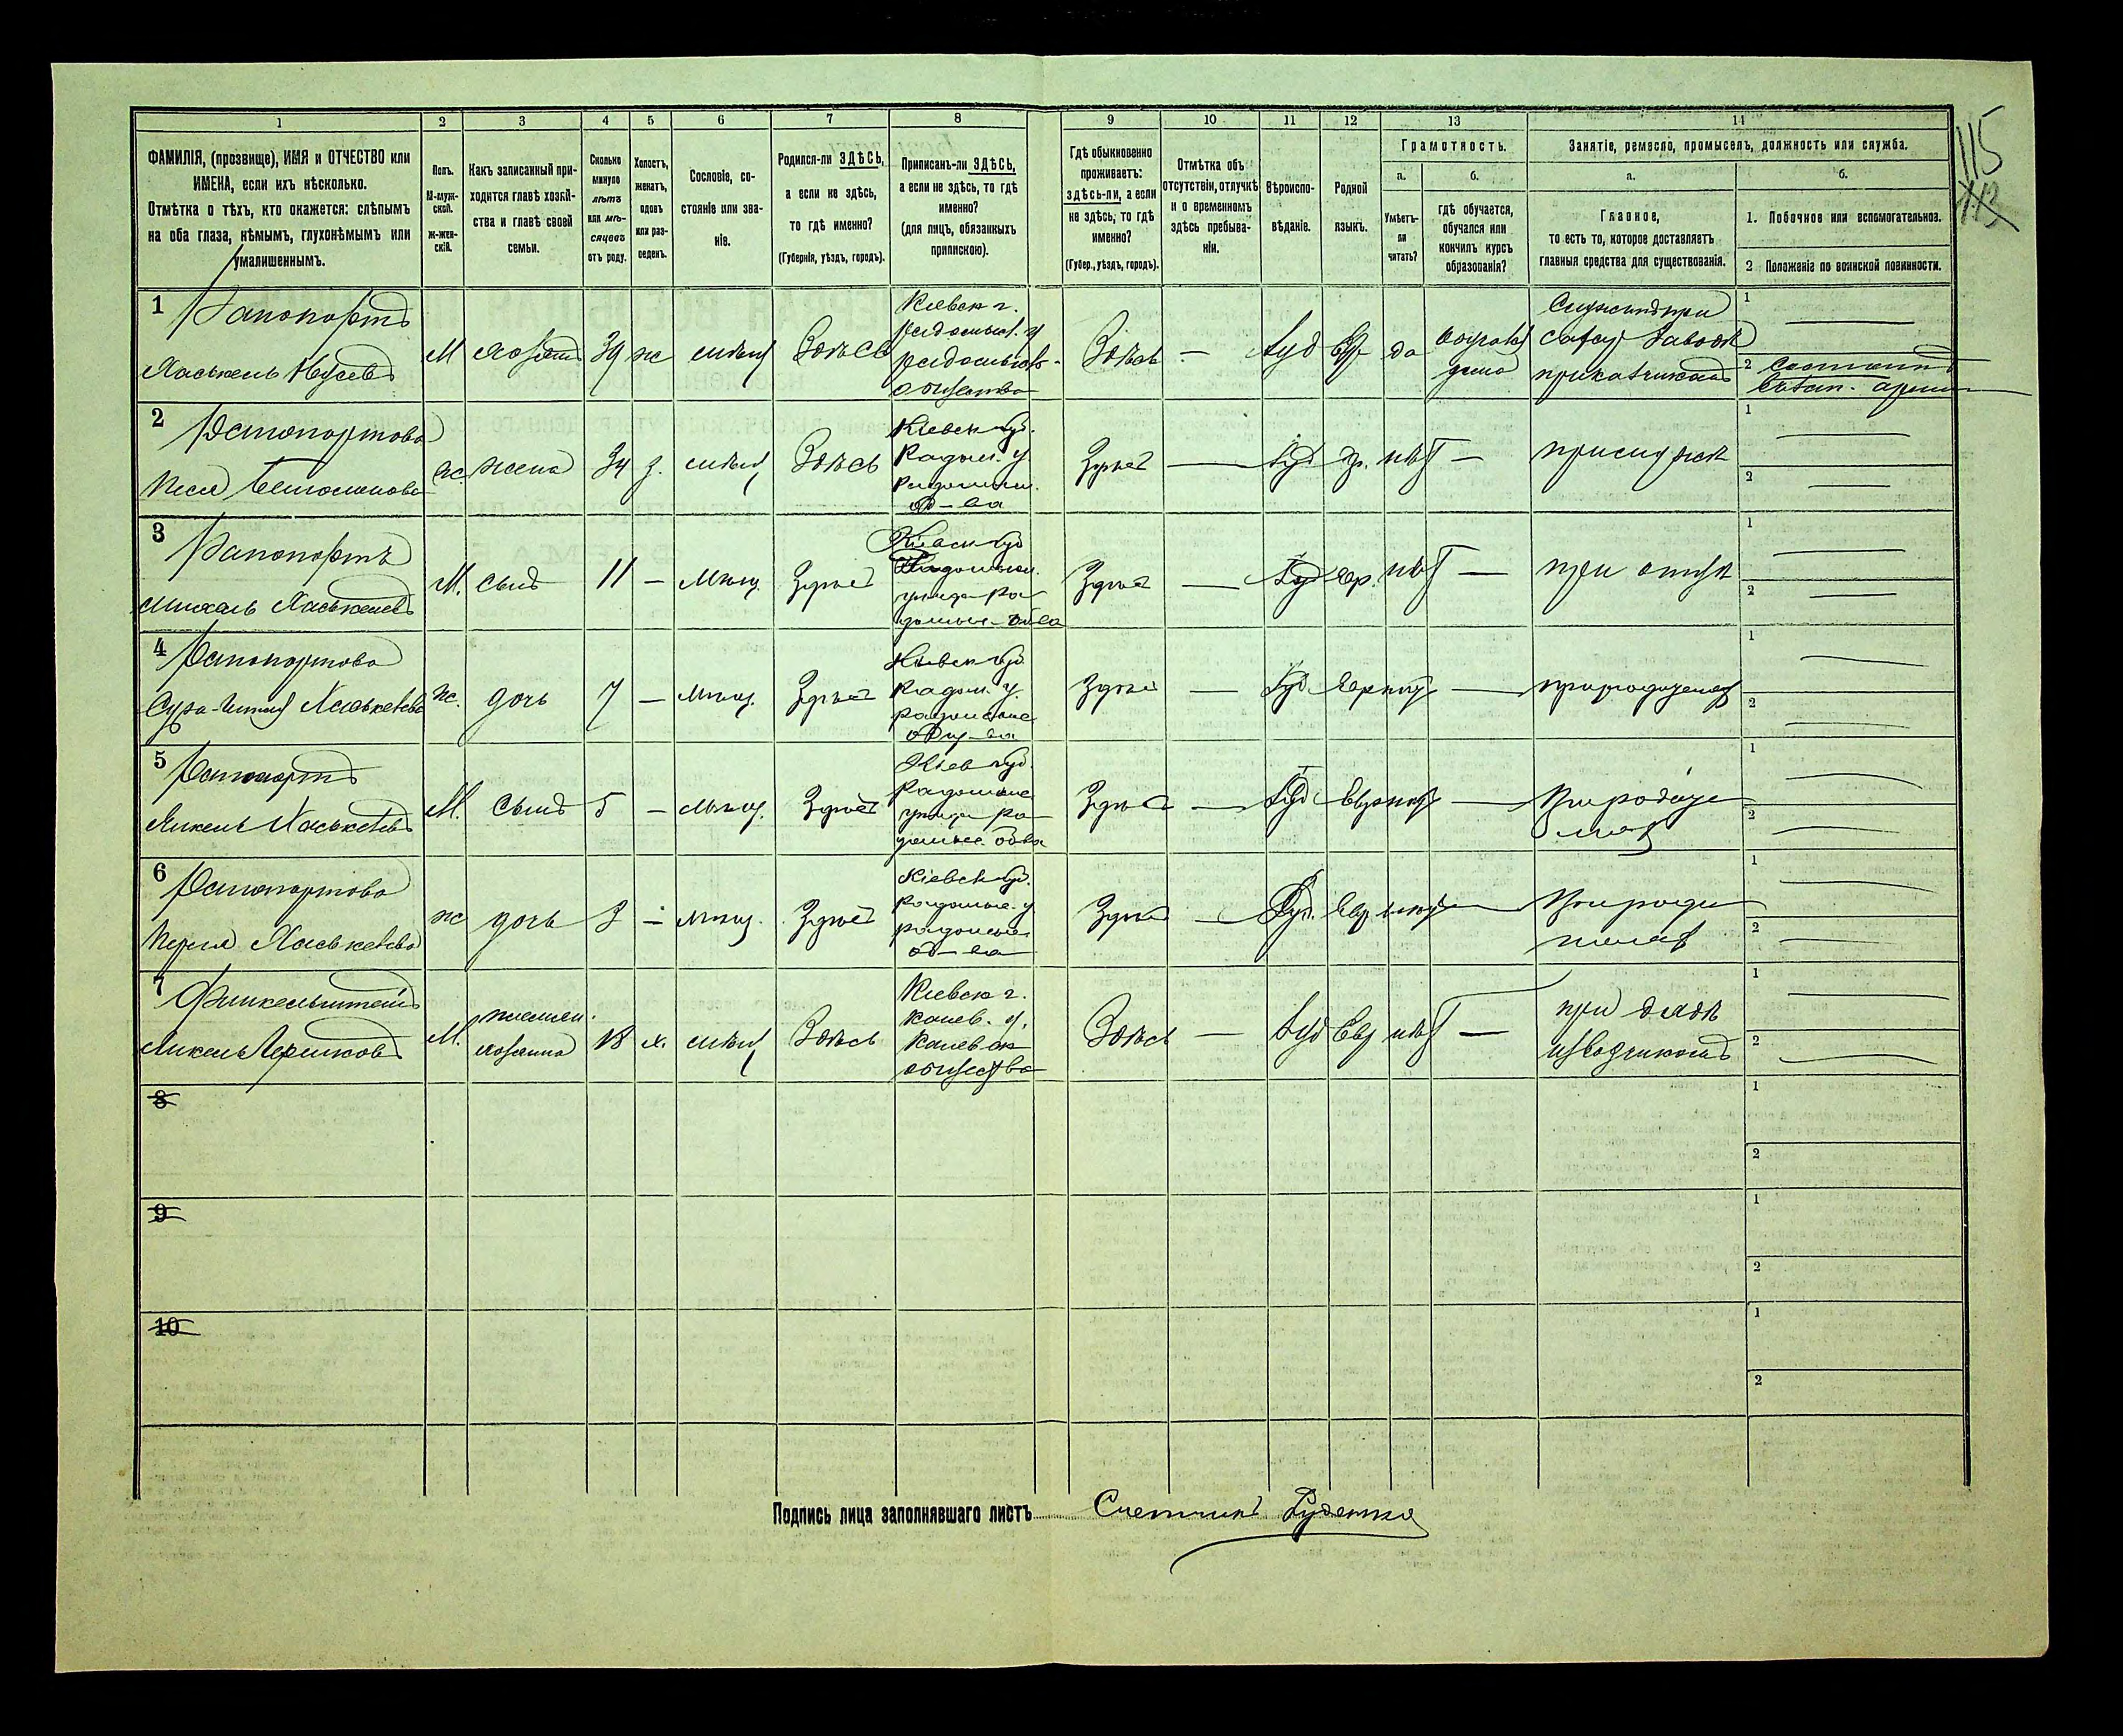 115
1 2 3 4 5 6 7 8 9 10 11 12 13 14
ФАМИЛІЯ, (прозвище), ИМЯ и ОТЧЕСТВО или
ИМЕНА, если ихъ нѣсколько.
Отмѣтка о тѣхъ, кто окажется: слѣпымъ
на оба глаза, нѣмымъ, глухонѣмымъ или
умалишеннымъ.
Полъ.
М-муж-
ской.
ж-жен-
скій.
Какъ записанный при-
ходится главѣ хозяй-
ства и главѣ своей
семьи.
Сколько
минуло
лѣтъ
или мѣ-
сяцевъ
отъ роду.
Холостъ,
женатъ,
вдовъ
или раз-
веденъ.
Сословіе, со-
стояніе или зва-
ніе.
Родился-ли ЗДѢСЬ,
а если не здѣсь,
то гдѣ именно?
(Губернія, уѣздъ, городъ).
Приписанъ-ли ЗДѢСЬ,
а если не здѣсь, то гдѣ
именно?
(для лицъ, обязанныхъ
припискою).
Гдѣ обыкновенно
проживаетъ:
здѣсь-ли, а если
не здѣсь, то гдѣ
именно?
(Губер., уѣздъ, городъ).
Отмѣтка объ
отсутствіи, отлучкѣ
и о временномъ
здѣсь пребыва-
ніи.
Вѣроиспо-
вѣданіе.
Родной
языкъ.
Грамотность.
а.
Умѣетъ-
ли
читать?
б.
гдѣ обучается,
обучался или
кончилъ курсъ
образованія?
Занятіе, ремесло, промыселъ, должность или служба.
а.
Главное,
то есть то, которое доставляетъ
главныя средства для существованія.
б.
1. Побочное или вспомогательное.
2 Положеніе по воинской повинности.
1 Рапопортъ
Хаськель
М хозяинъ 39 ж мѣщ Здѣсь
Кіевск г.
радомысл. у
радомысльск.
общества
Здѣсь — Іуд Евр да
дома
сахар заводѣ
1 —
2
2 Рапопортова
ж. жена 34 з. мѣщ Здѣсь
Кіевск губ.
Радом. у
Радомысл.
об-ва
Здѣсь — Іуд Евр. нѣт —
1 —
2 —
3 Рапопортъ
Хаськелевъ
М. сынъ 11 — Мѣщ. Здѣсь
Кіевск губ
Радомысл.
уѣзда Ра-
домысл- об-ва
Здѣсь — Іуд Евр. нѣт — при отцѣ
1 —
2 —
4 Рапопортова
Сура- Хаськелева
ж. дочь 7 — Мѣщ. Здѣсь
Кіевск губ
Радом. у.
радомысльск
общ-ва
Здѣсь — Іуд Евр нѣт —
1 —
2 —
5 Рапопортъ
Янкель Хаськелевъ
М. сынъ 5 — Мѣщ. Здѣсь
Кіев губ.
Радомысл
уѣзда Ра-
домысл. об-ва
Здѣсь — Іуд Евр нѣт —
1 —
2 —
6 Рапопортова
Перля Хаськелева
ж дочь 3 — мѣщ. Здѣсь
Кіевск губ.
Радомысл. у
радомысл
об-ва
Здѣсь — Іуд. Евр нѣт —
1 —
2 —
7 Финкельштейнъ
Янкель
М. племян.
хозяина 18 х. мѣщ Здѣсь
Кіевск г.
канев. у.
Каневск
общества
Здѣсь — Іуд Евр нѣт — при дядѣ
извозчикомъ
1 —
2 —
8
1
2
9
1
2
10
1
2
Подпись лица заполнявшаго листъ Счетчикъ